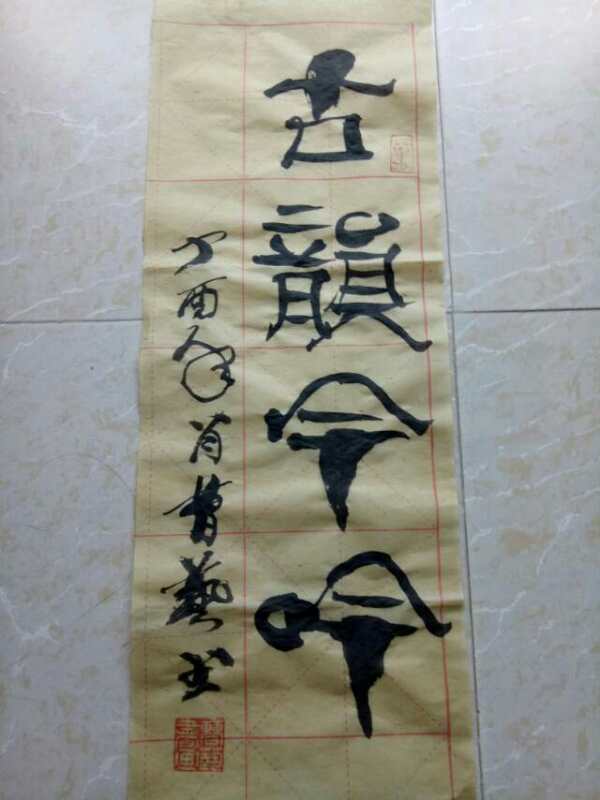 古韻今命
丁酉年肖曹藝书